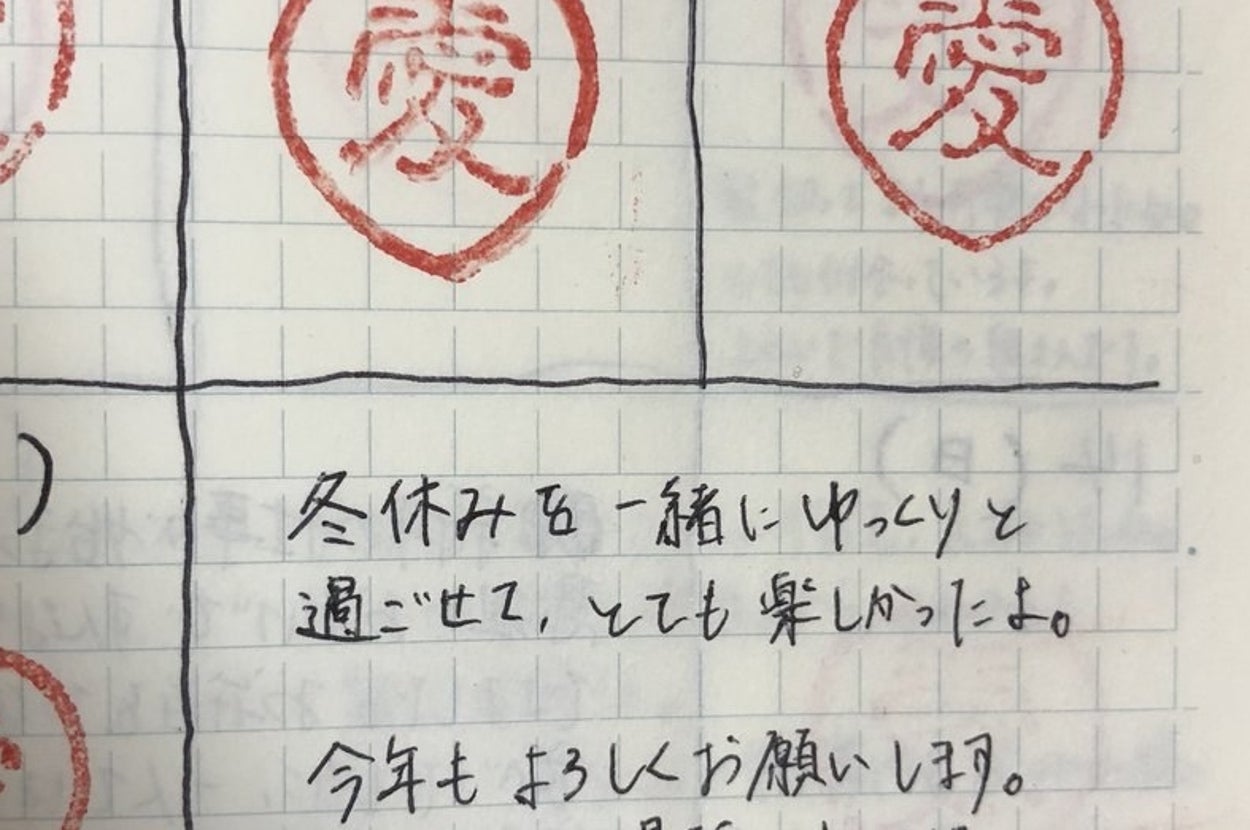 愛
愛
)
冬休みを一緒にゆっくりと
過ごせて、とても楽しかったよ。
今年もよろしくお願いします。